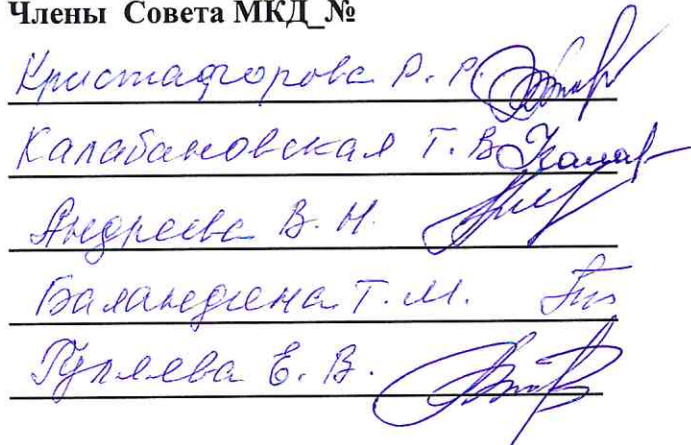 Члены Совета МКД_№
Кристафорова Р. Р.
Калабановская Т. В.
Андреева В. Н.
Баландина Т. М.
Гуляева Е. В.